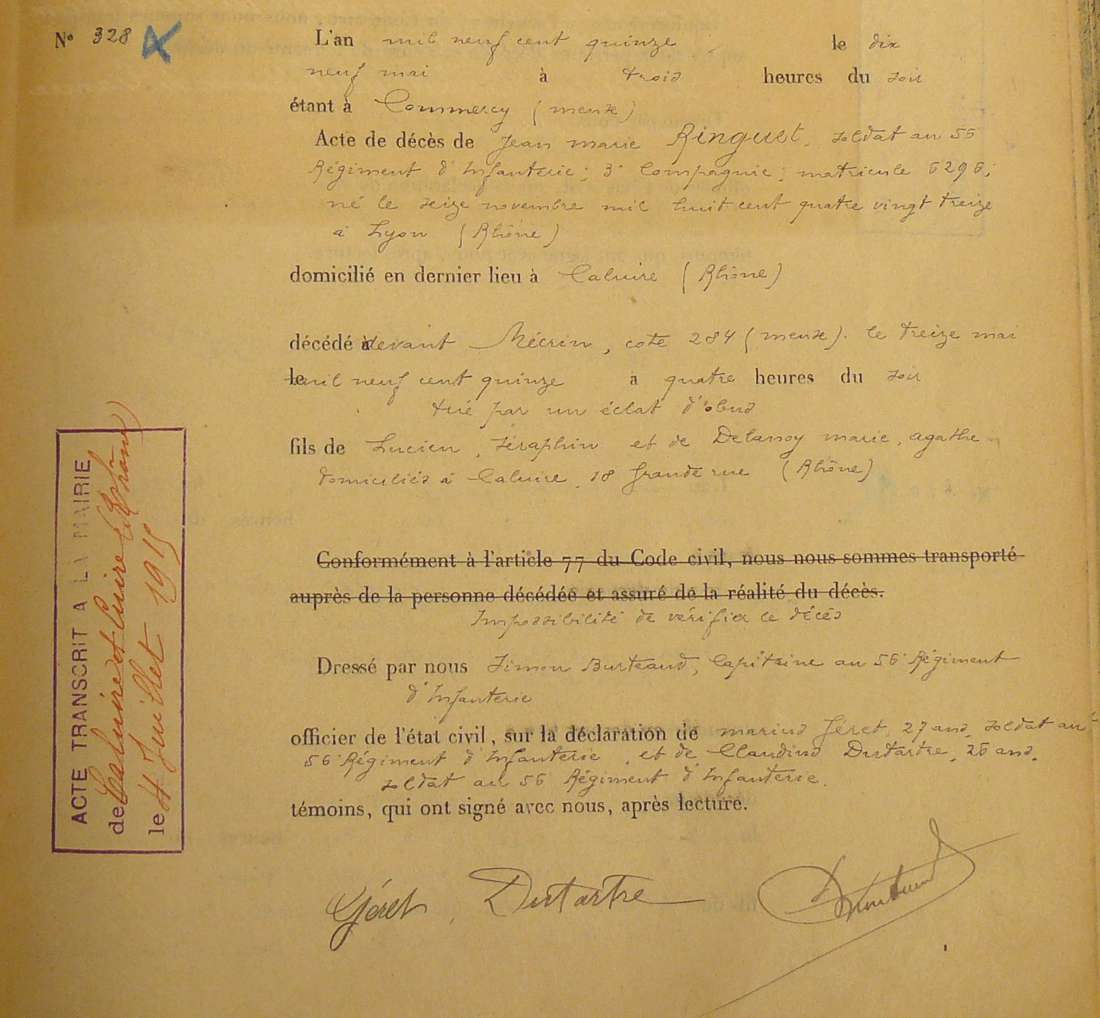 N° 328
L'an mil neuf cent quinze le dix
neuf mai à trois heures du soir
étant à Commercy (meuse)
Acte de décès de Jean marie Ringuet, soldat au 56
Régiment d'Infanterie; 3e Compagnie; matricule 6296;
né le seize novembre mil huit cent quatre vingt treize
à Lyon (Rhône)
domicilié en dernier lieu à Caluire (Rhône)
décédé à devant Mécrin, cote 284 (meuse). le treize mai
le mil neuf cent quinze à quatre heures du soir
tué par un éclat d'obus
fils de Lucien, Séraphin et de Delannoy marie, agathe
domiciliés à Caluire, 18 Grande rue (Rhône)
Conformément à l'article 77 du Code civil, nous nous sommes transporté
auprès de la personne décédée et assuré de la réalité du décès.
Impossibilité de vérifier le décès
Dressé par nous Simon Burteaud, Capitaine au 56e Régiment
d'Infanterie
officier de l'état civil, sur la déclaration de marius Géret, 27 ans, soldat au
56e Régiment d'Infanterie, et de Claudius Dutartre, 26 ans,
soldat au 56 Régiment d'Infanterie.
témoins, qui ont signé avec nous, après lecture.
Géret, Dutartre
ACTE TRANSCRIT A LA MAIRIE
de Caluire et Cuire (Rhône)
le 4 Juillet 1915